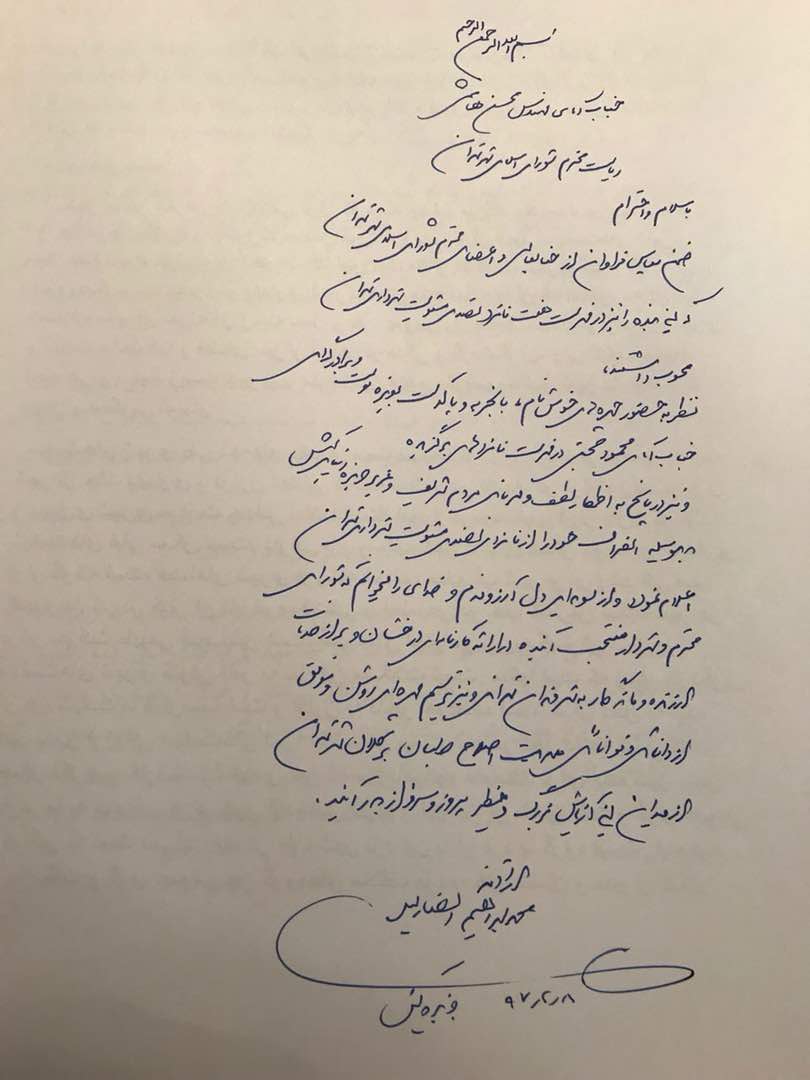 بسم الله الرحمن الرحیم
جناب آقای مهندس محسن هاشمی
ریاست محترم شورای اسلامی شهر تهران
با سلام و احترام
ضمن سپاس فراوان از جنابعالی و اعضای محترم شورای اسلامی شهر تهران
که اینجانب را نیز در فهرست هفت نامزد تصدی مسئولیت شهرداری تهران
محسوب داشتند،
نظر به حضور چهره‌های خوش نام، با تجربه و پاکدست بویژه دوست و برادر گرامی
جناب آقای محمود حجتی در فهرست نامزدهای برگزیده
و نیز در پاسخ به اظهار لطف و مردم شریف و عزیز جزیره زیبای کیش
بدینوسیله انصراف خود را از نامزدی تصدی مسئولیت شهرداری تهران
اعلام نموده و از سویدای دل آرزومندم و خدای را می‌خوانم که شورای
محترم و شهردار منتخب آینده در ارائه کارنامه‌ای درخشان و پر از خدمات
ارزنده و ماندگار به شهروندان تهرانی و نیز ترسیم چهره‌ای روشن و موفق
از دانائی و توانائی مدیریت اصلاح طلبان بر کلان شهر تهران
از میدان این آزمایش بزرگ و خطیر پیروز و سرفراز به در آیند.
ارادتمند
محمدابراهیم انصاری لاری
۹۷٫۲٫۸
جزیره کیش